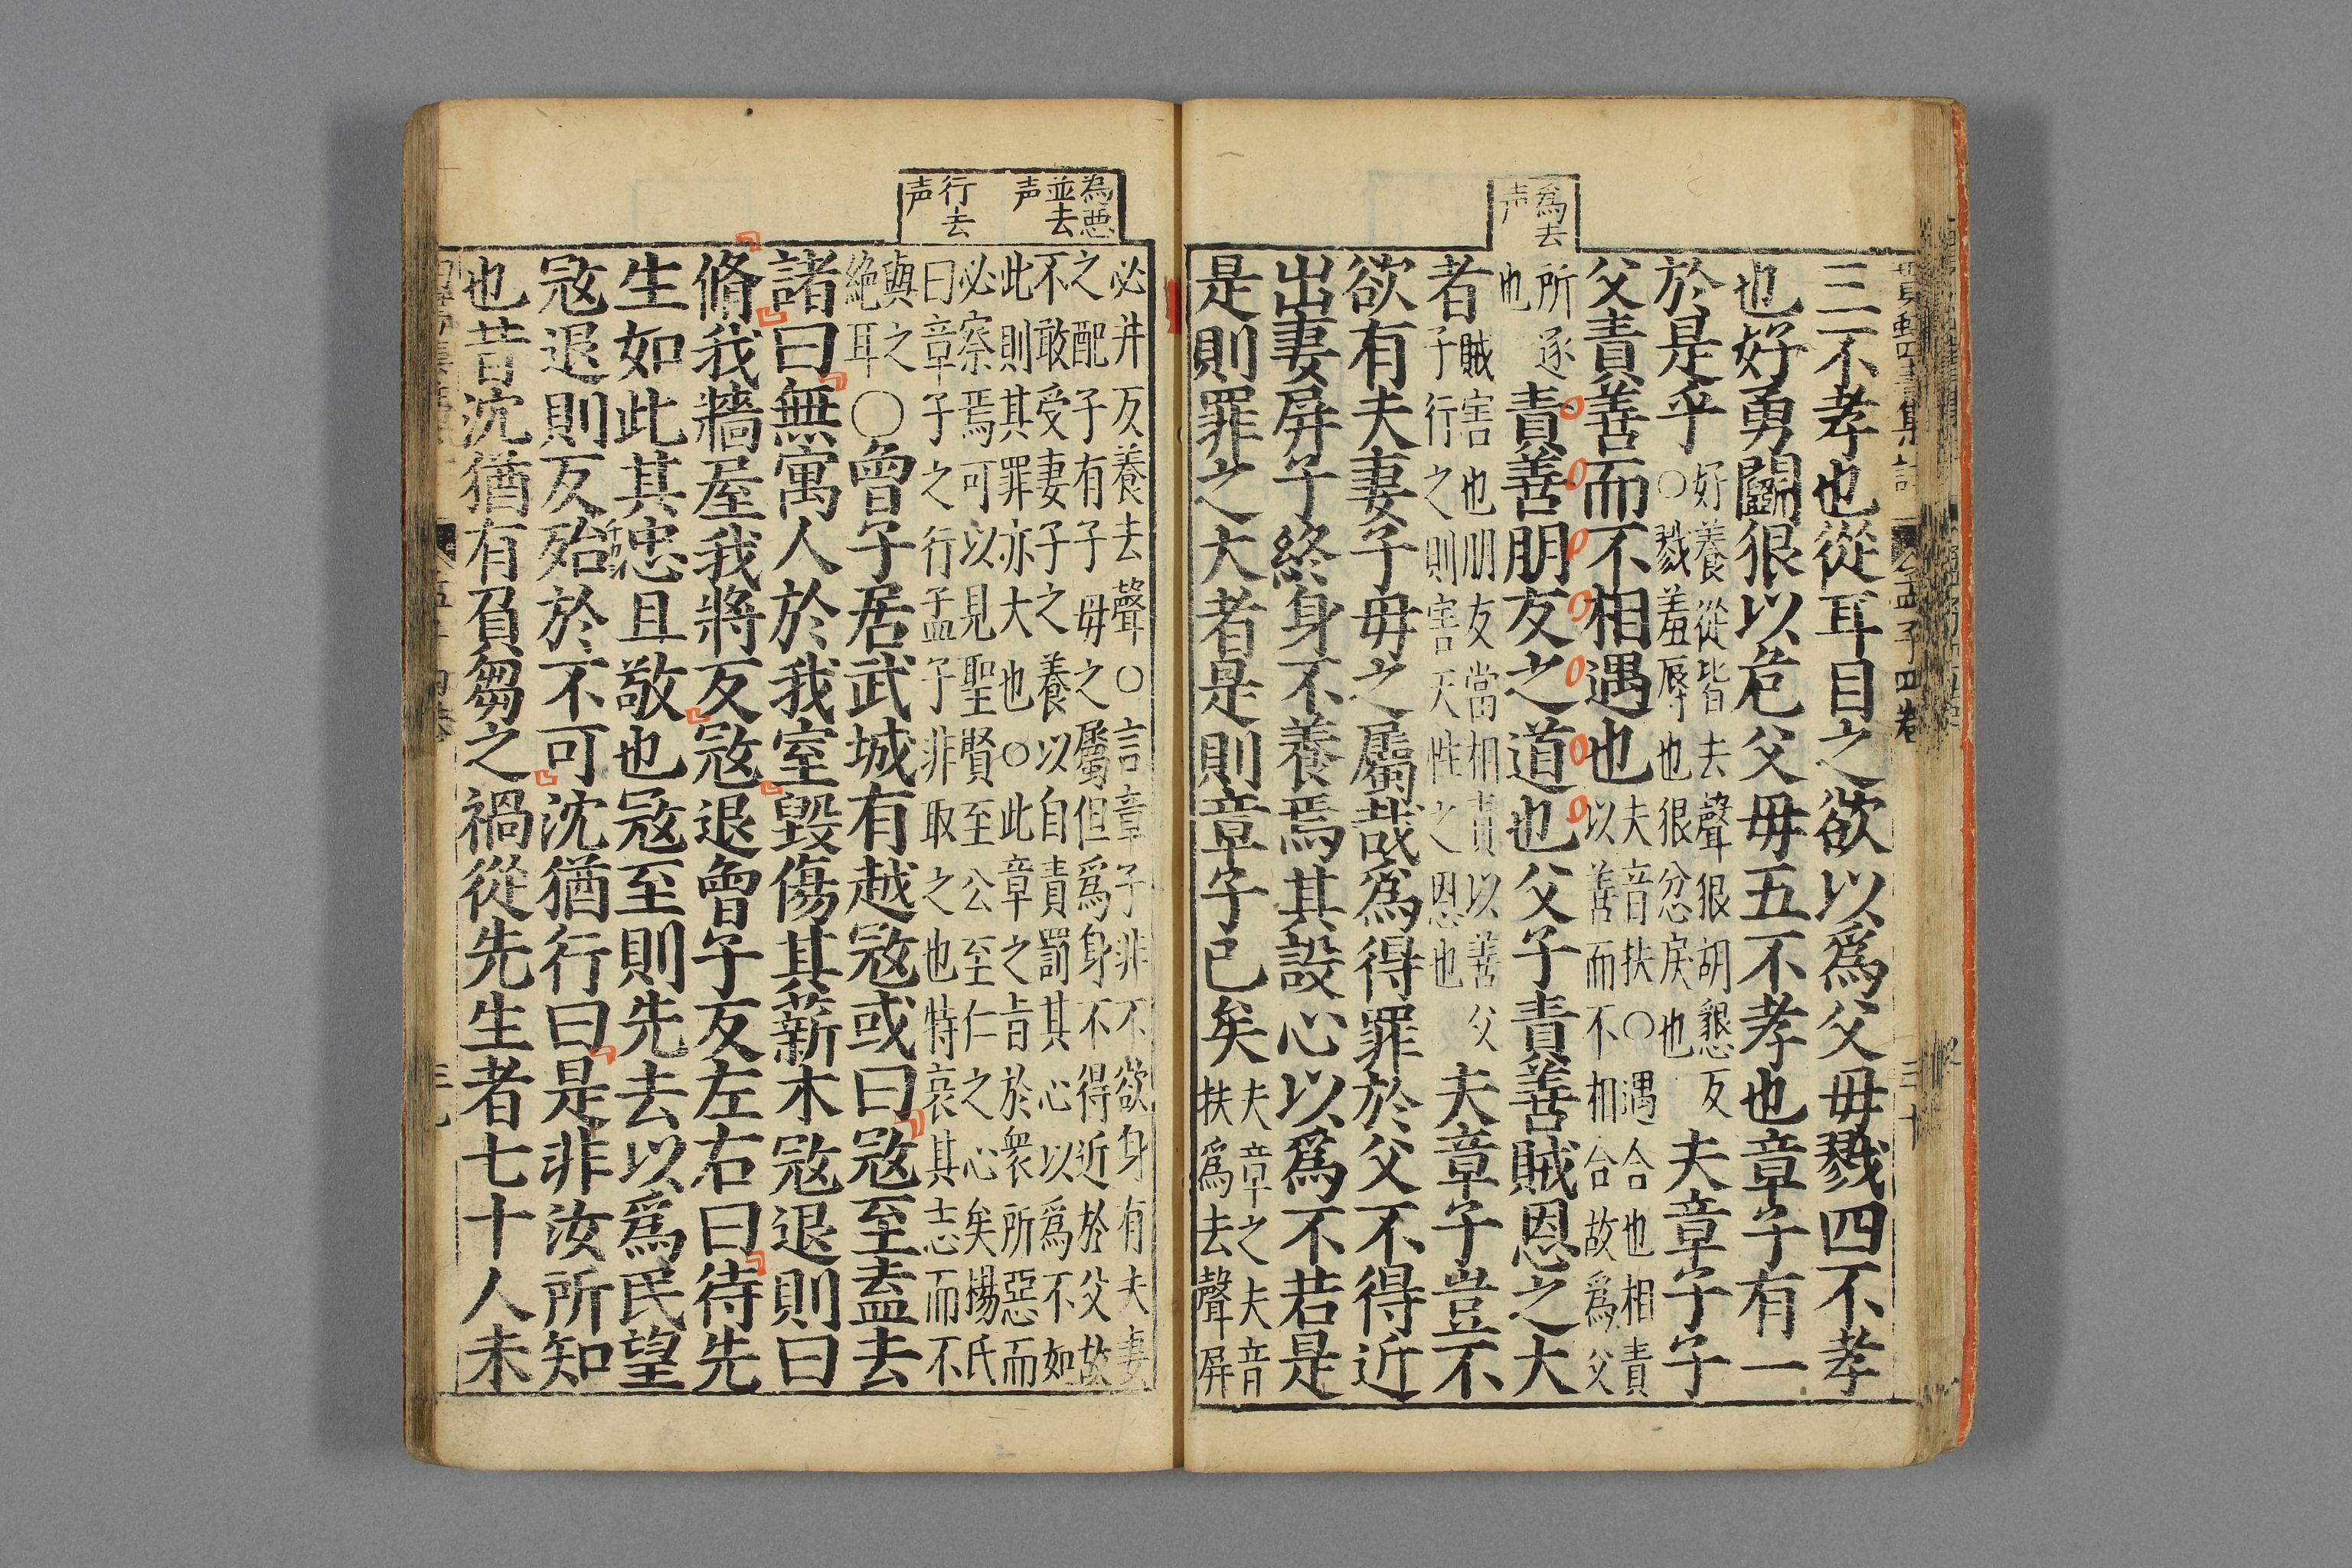 爲去
声
三不孝也從耳目之欲以爲父毋戮四不孝
也好勇鬭狠以危父毋五不孝也章子有一
於是乎
好養從皆去聲狠胡懇反
○戮羞辱也狠忿戾也
夫章子子
父責善而不相遇也
夫音扶○遇合也相責
以善而不相合故爲父
所逐
也
責善朋友之道也父子責善賊恩之大
者
賊害也朋友當相責以善父
子行之則害天性之恩也
夫章子豈不
欲有夫妻子毋之屬哉爲得罪於父不得近
出妻屏子終身不養焉其設心以爲不若是
是則罪之大者是則章子已矣
夫章之夫音
扶爲去聲屏
為惡
並去
声
行去
声
必井反養去聲○言章子非不欲身有夫妻
之配子有子毋之屬但爲身不得近於父故
不敢受妻子之養以自責罰其心以爲不如
此則其罪亦大也○此章之旨於衆所惡而
必察焉可以見聖賢至公至仁之心矣楊氏
曰章子之行孟子非取之也特哀其志而不
與之
絶耳
○曾子居武城有越冦或曰冦至盍去
諸曰無寓人於我室毀傷其薪木冦退則曰
脩我牆屋我將反冦退曾子反左右曰待先
生如此其忠且敬也冦至則先去以爲民望
冦退則反殆於不可沈猶行曰是非汝所知
也昔沈猶有負芻之禍從先生者七十人未